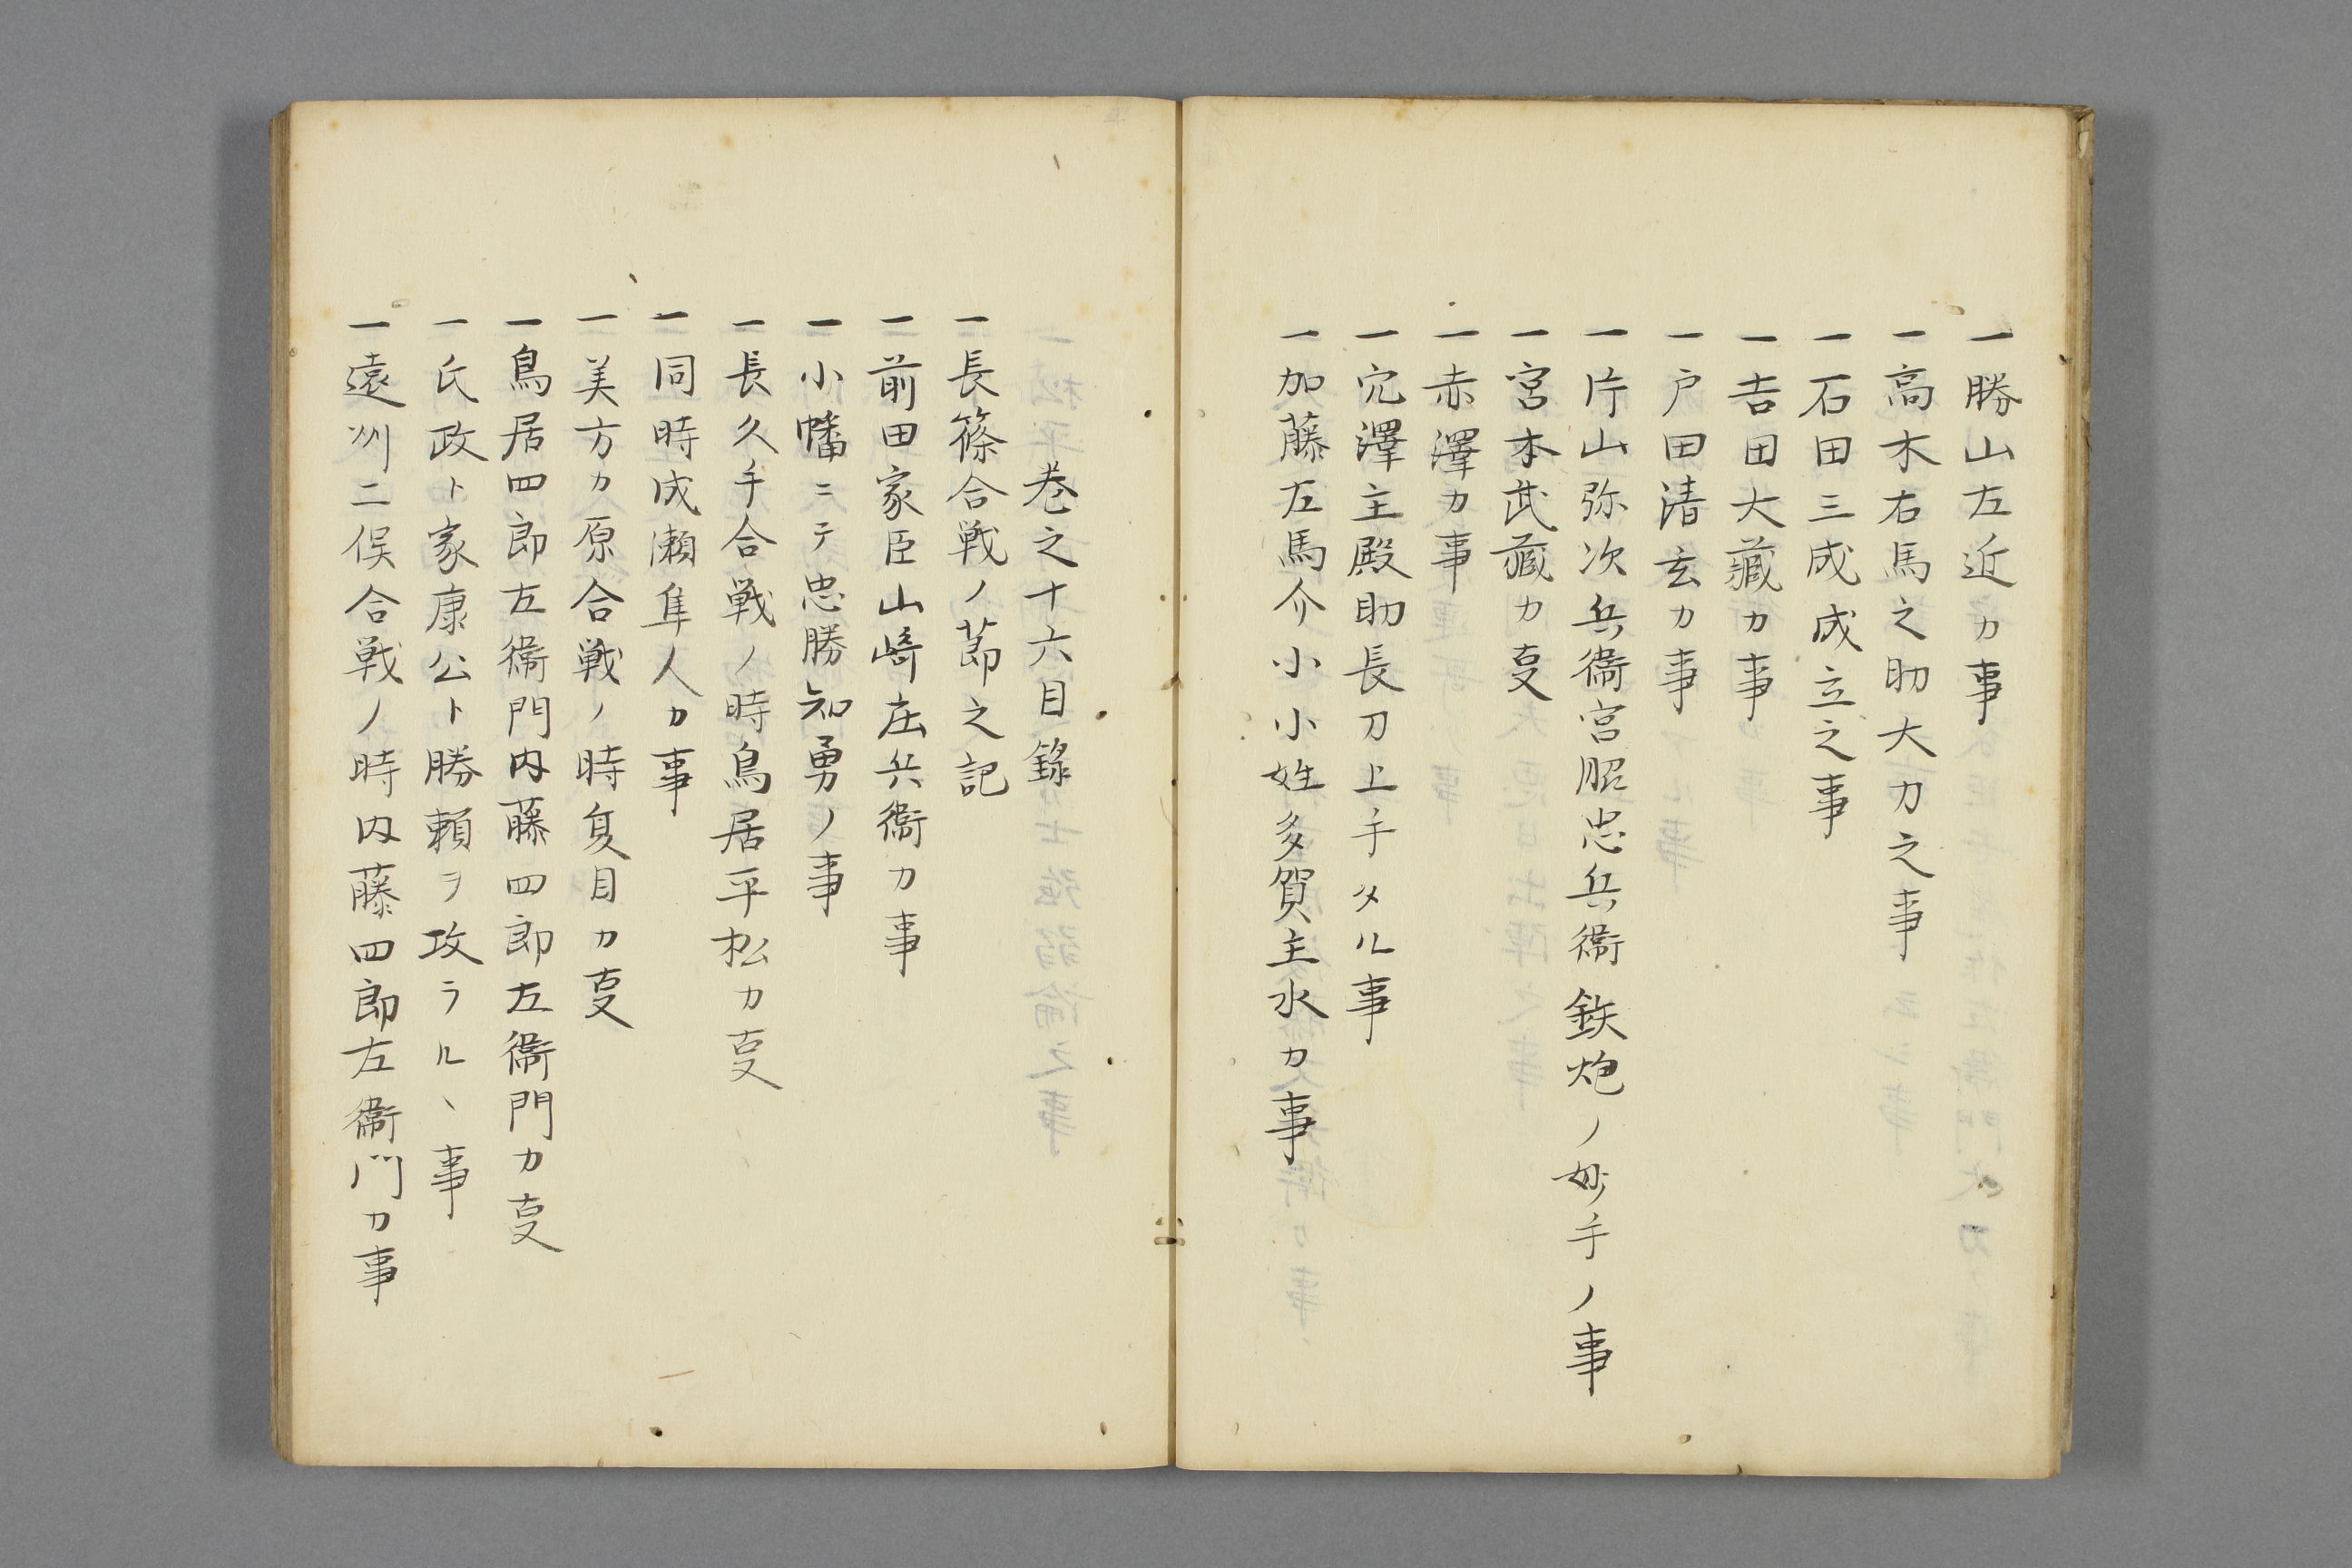 一勝山左近カ事
一高木右馬之助大力之事
一石田三成成立之事
一吉田大蔵カ事
一戸田清玄カ事
一片山弥次兵衞宮昭忠兵衞鉄炮ノ妙手ノ事
一宮本武蔵カ㕝
一赤澤カ事
一穴澤主殿助長刀上手タル事
一加藤左馬介小小姓多賀主水カ事
巻之十六目録
一長篠合戦ノ節之記
一前田家臣山﨑庄兵衞カ事
一小幡ニテ忠勝知勇ノ事
一長久手合戦ノ時鳥居平松カ㕝
一同時成瀬隼人カ事
一美方カ原合戦ノ時夏目カ㕝
一鳥居四郎左衞門内藤四郎左衞門カ㕝
一氏政ト家康公ト勝頼ヲ攻ラルヽ事
一遠州二俣合戦ノ時内藤四郎左衞門カ事